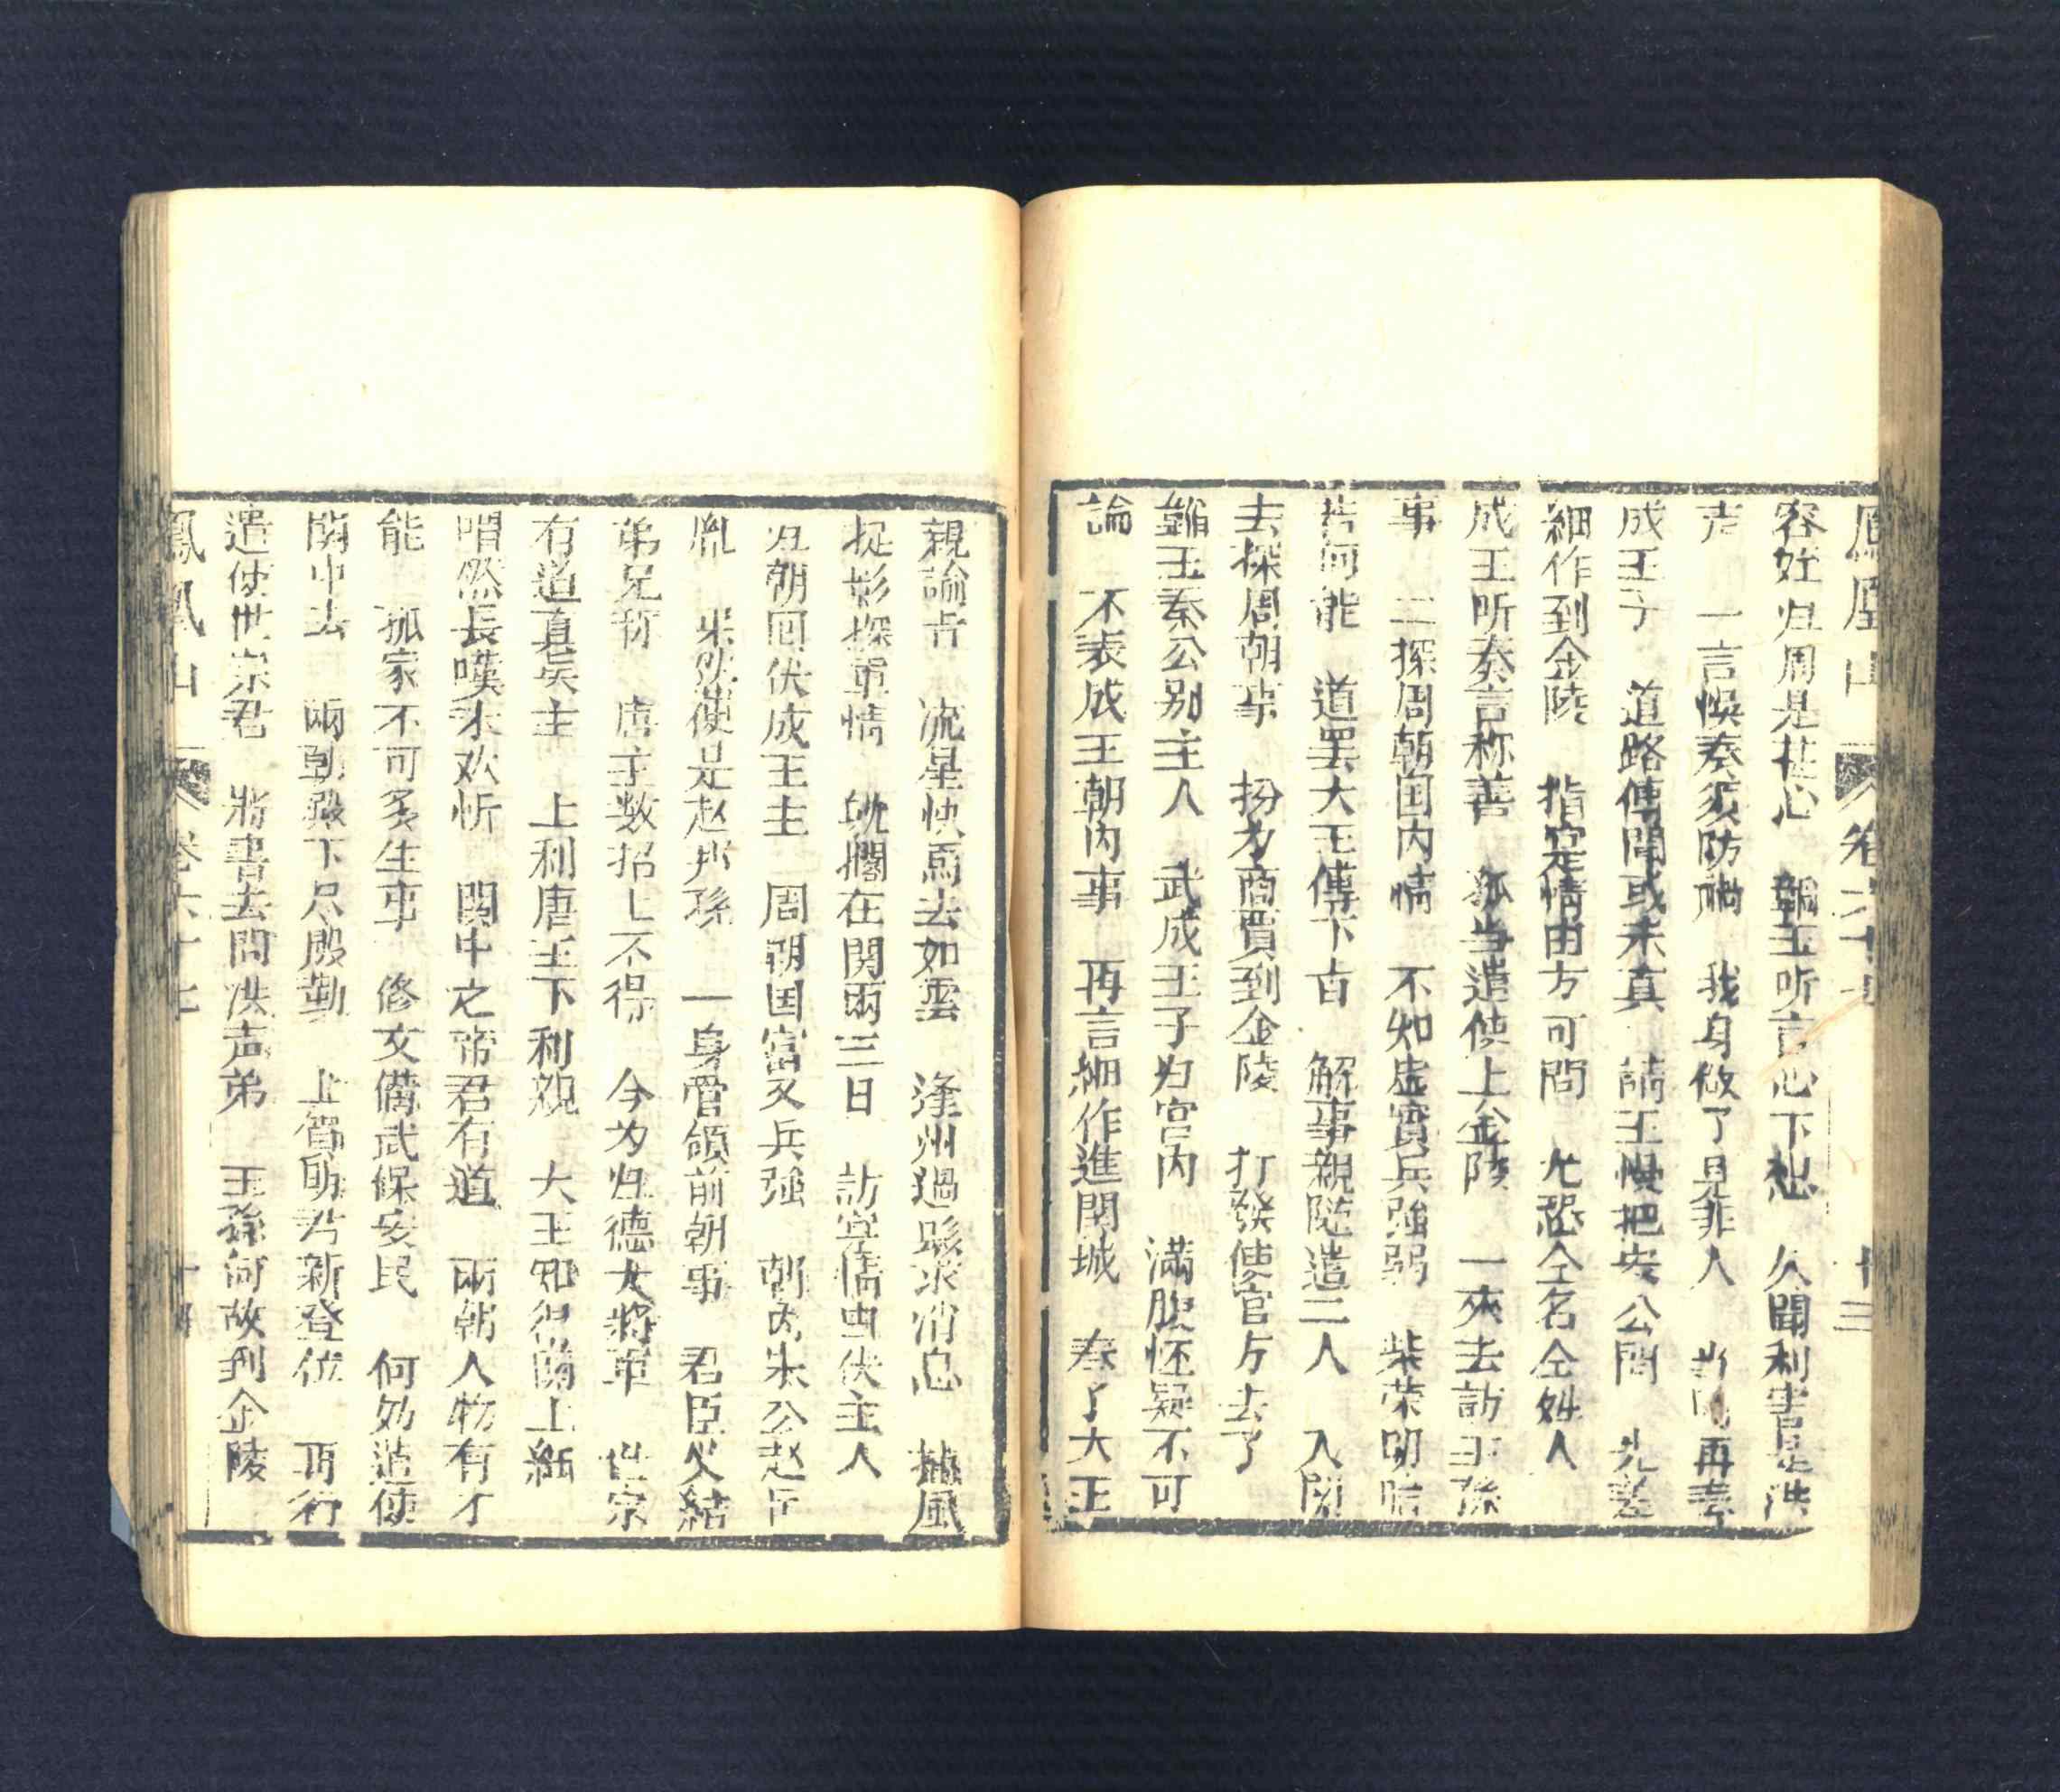 鳳凰山 卷六十七 十三
容姓归周是甚心 韻王听言心下想 久聞利害是洪
声 一言悞奏須防禍 我身做了是非人 当时再奏
成王子 道路傳聞或未真 請王慢把安公問 先差
細作到金陵 指定情由方可問 尤恐仝名仝姓人
成王听奏言称善 孤当遣使上金陵 一來去訪王孫
事 二探周朝国内情 不知虛實兵強弱 柴荣明暗
若何能 道罢大王傳下旨 解事親隨遣二人 入関
去探周朝事 扮为商賈到金陵 打發使官方去了
王秦公别主人 武成王子归宫内 滿腹怀疑不可
論 不表成王朝内事 再言細作進関城 奉了大王
親諭旨 流星快馬去如雲 逢州過縣求消息 捕風
捉影探軍情 躭擱在関兩三日 訪寔情由伏主人
归朝回伏成王主 周朝国富又兵強 朝内朱公赵匡
胤 果然便是赵光孫 一身管領前朝事 君臣义結
弟兄称 唐主数招上不得 今为归德大將軍 世宗
有道真矣主 上利唐王下利親 大王知得蘭上紙
喟然長嘆不欢忻 関中之帝君有道 兩朝人物有才
能 孤家不可多生事 修文備武保安民 何处遣使
蘭中去 兩朝殿下尽殷勤 上賀明君新登位 再行
遣使世宗君 將書去問洪声弟 王孫何故到金陵
鳳凰山 卷六十七 十四